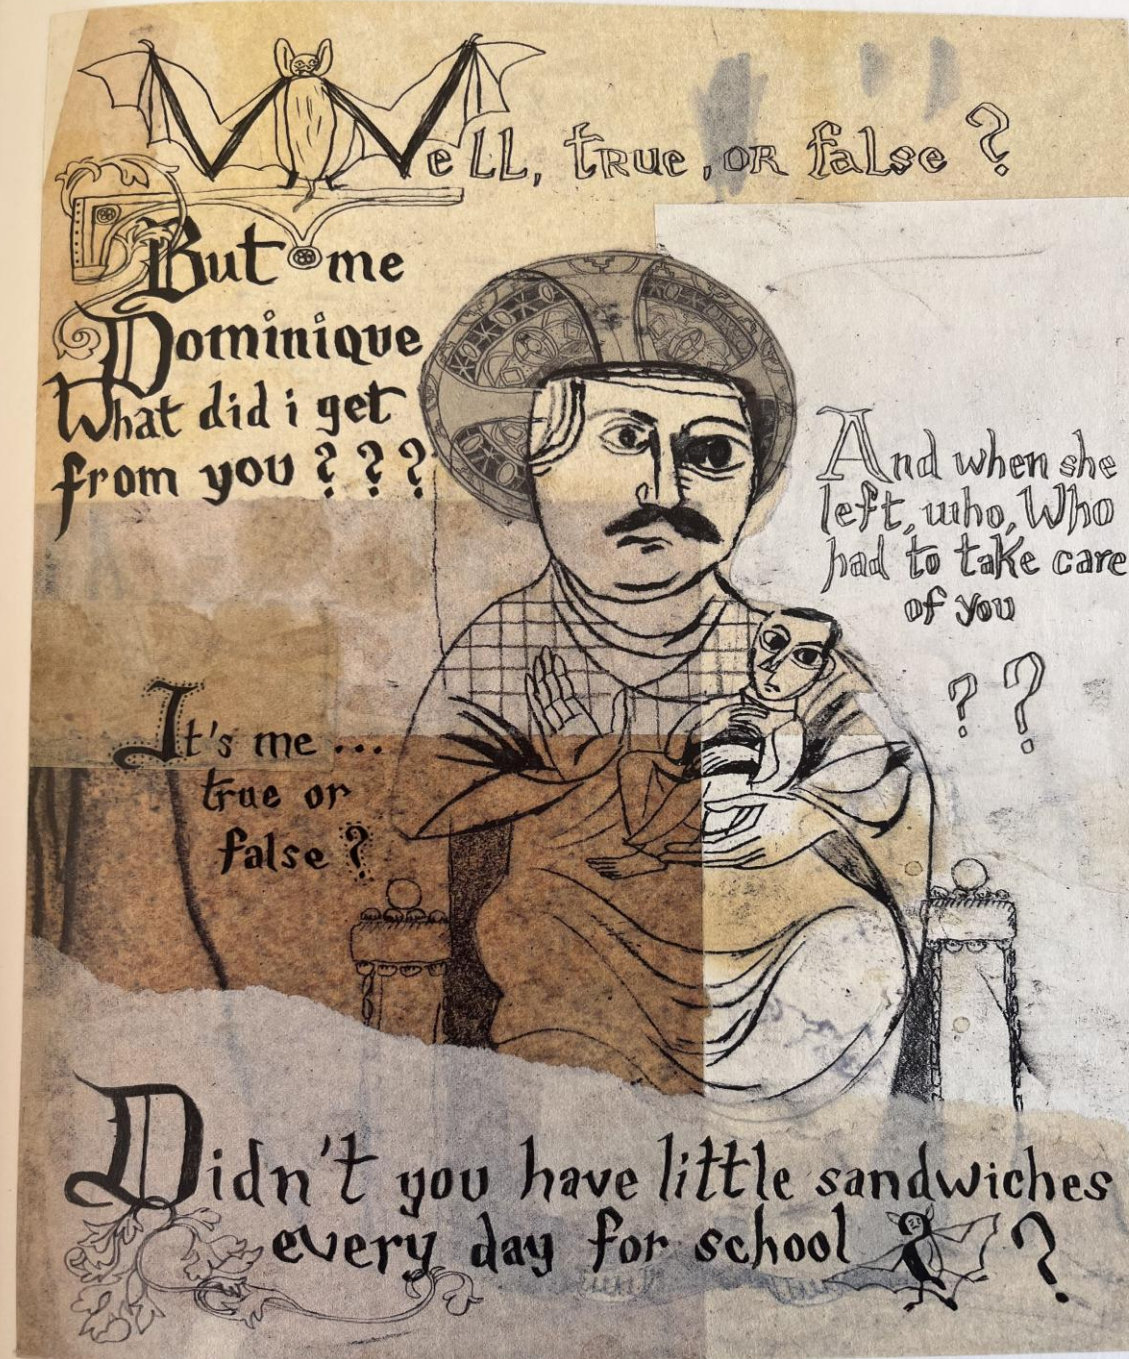 Well, true, or false ?
But me
Dominique
What did i get
from you ? ? ?
And when she
left, who, Who
had to take care
of you
? ?
It's me ...
true or
false ?
Didn't you have little sandwiches
every day for school ?